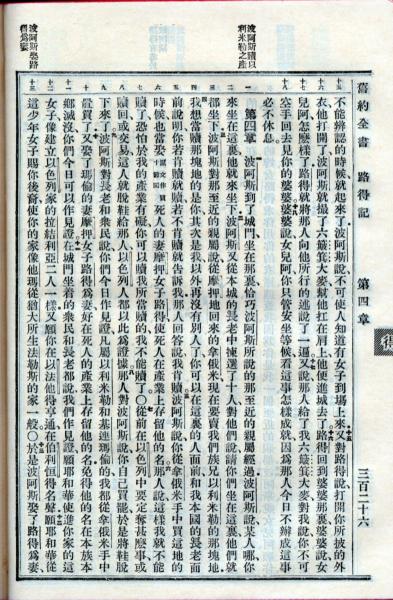 舊約全書 路得記 第四章 三百二十六
得
波阿斯贖以利米勒之產
波阿斯娶路得為妻
不能辨認的時候就起來了波阿斯說不可使人知道有女子到場上來又對路得說打開你所披的外
衣他打開了波阿斯就撮了六簸箕大麥幫他扛在肩上他便進城去了路得回到婆婆那裏婆婆說女
兒阿怎麼樣了路得就將那人向他所行的述說了一遍又說那人給了我六簸箕大麥對我說你不可
空手回去見你的婆婆婆婆說女兒阿你只管安坐等候看這事怎樣成就因為那人今日不辦成這事
必不休息
第四章 一 波阿斯到了城門坐在那裏恰巧波阿斯所說的那至近的親屬經過波阿斯說某人哪你
來坐在這裏他就來坐下波阿斯又從本城的長老中揀選了十人對他們說請你們坐在這裏他們就
都坐下波阿斯對那至近的親屬說從摩押地回來的拿俄米現在要賣我們族兄以利米勒的那塊地
我想當贖那塊地的是你其次是我以外再沒有別人了你可以在這裏的人面前和我本國的長老面
前說明你若肯贖就贖若不肯贖就告訴我那人回答說我肯贖波阿斯說你從拿俄米手中買這地的
時候也當娶原文作買十節同死人的妻摩押女子路得使死人在產業上存留他的名那人說這樣我就不能
贖了恐怕於我的產業有礙你可以贖我所當贖的我不能贖了○從前在以色列中要定奪甚麼事或
贖回或交易這人就脫鞋給那人以色列人都以此為證據那人對波阿斯說你自己買罷於是將鞋脫
下來了波阿斯對長老和衆民說你們今日作見證凡屬以利米勒和基連瑪倫的我都從拿俄米手中
置買了又娶了瑪倫的妻摩押女子路得為妻好在死人的產業上存留他的名免得他的名在本族本
鄉滅沒你們今日可以作見證在城門坐着的衆民和長老都說我們作見證願耶和華使進你家的這
女子像建立以色列家的拉結利亞二人一樣又願你在以法他得亨通在伯利恒得名聲願耶和華從
這少年女子賜你後裔使你的家像他瑪從猶大所生法勒斯的家一般○於是波阿斯娶了路得為妻